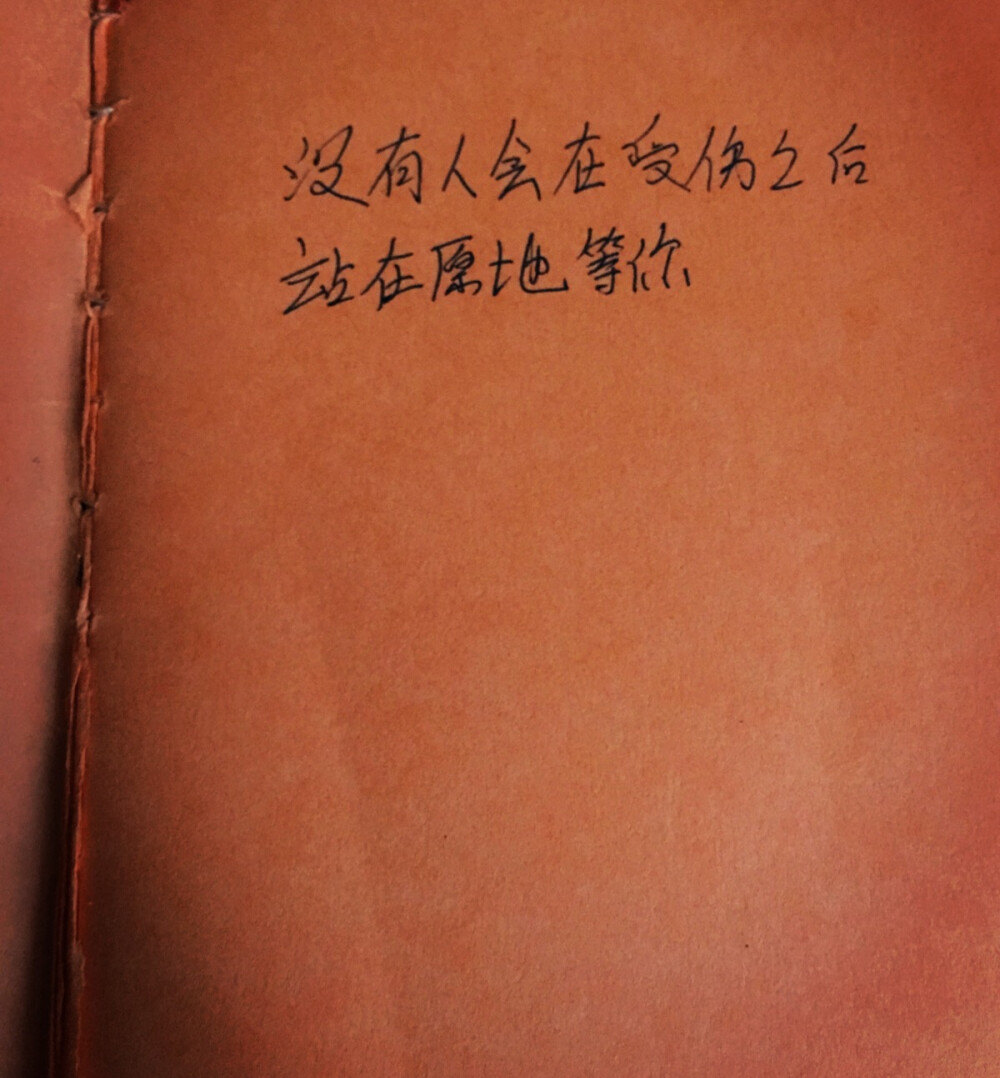 没有人会在受伤之后
站在愿地等你